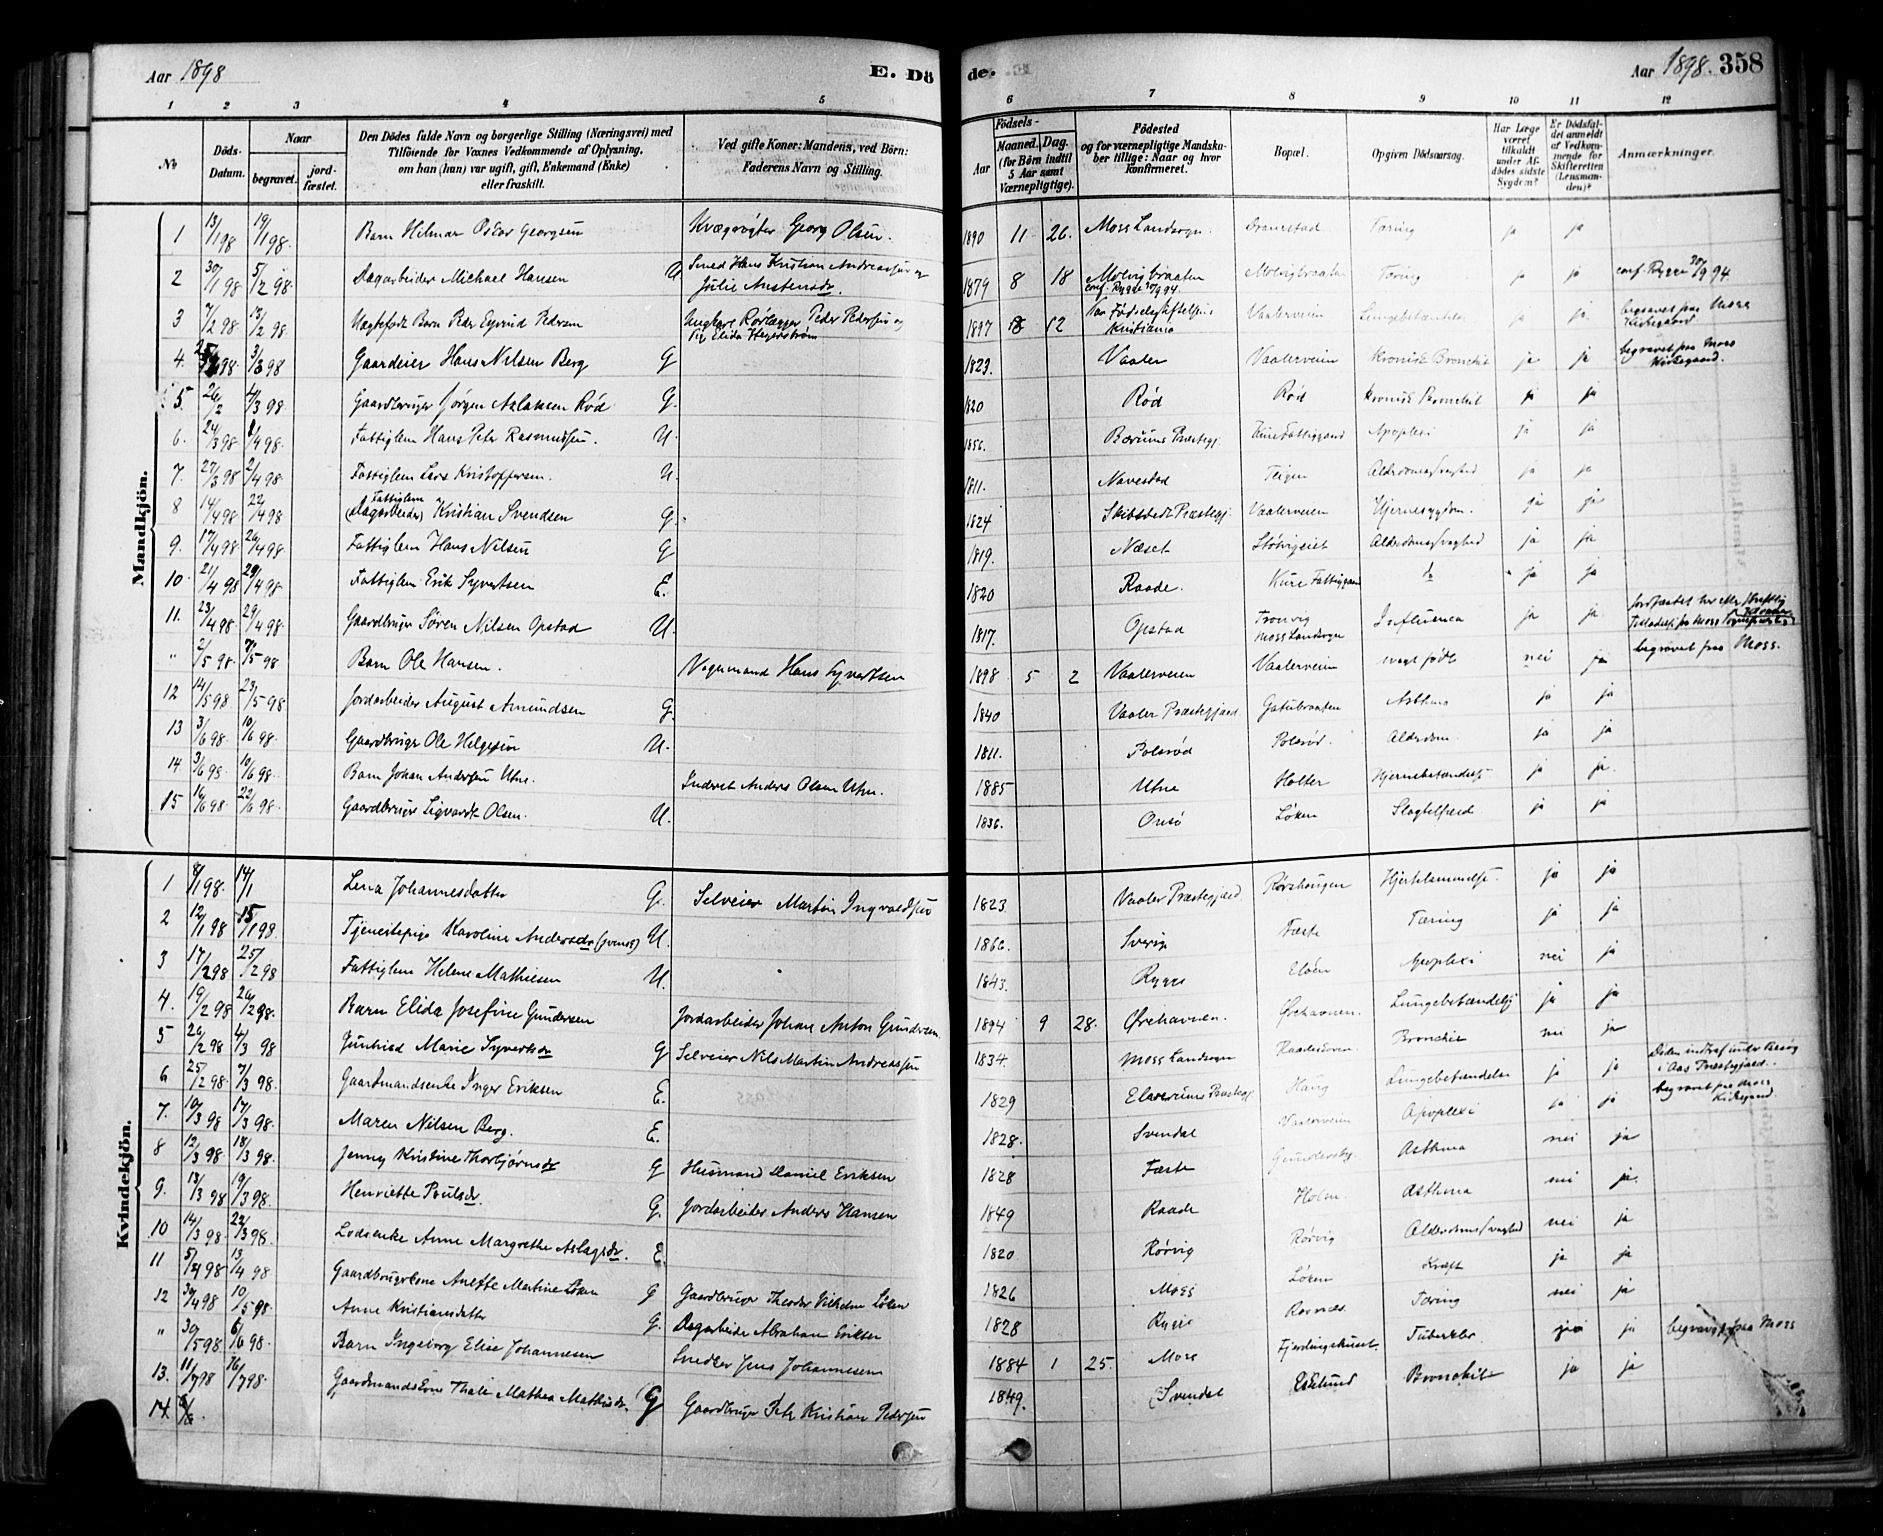 Aar 1898 E. Dö
de. Aar 1898. 358
1 2 3 4 5
6 7 8 9 10 11 12
No Döds-Datum. Naar begravet. jord-fæstet. Den Dödes fulde Navn og borgerlige Stilling (Næringsvei) med Tilföiende for Voxnes Vedkommende af Oplysning, om han (hun) var ugift, gift, Enkemand (Enke) eller fraskilt. Ved gifte Koner: Mandens, ved Börn: Faderens Navn og Stilling.
Födsels- Aar Maaned. Dag. (for Börn indtil 5 Aar samt Værnepligtige). Födested og for værnepligtige Mandskaber tillige: Naar og hvor konfirmeret. Bopæl. Opgiven Dödsaarsag. Har Læge været tilkaldt under Afdödes sidste Sygdom? Er Dödsfaldet anmeldt af Vedkommende for Skifteretten (Lensmanden)? Anmærkninger.
Mandkjön.
1 13/1 98 19/1 98. Barn Helmar Oskar Georgsen Kvægrögter Georg Olsen. 1890 11 26. Moss Landsogn. Dramstad. Tæring ja ja
2 30/1 98 5/2 98. Dagarbeider Michael Hansen U Smed Hans Kristian Andreassen og Julie Austensdr. 1879 8 18 Molvigbraaten conf. Rygge 30/9 94. Molvigbraaten Tæring ja ja conf. Rygge 30/9 94
3 7/2 98 13/2 98 Uægtefødt Barn Peder Eyvind Pedersen Ungkarl Rørlægger Peder Pedersen og Elida 1897 12 Fødselsstiftelsen Kristiania Vaalerveien Lungebetændelse ja ja begravet paa Kirkegaard
4. 98 3/3 98 Gaardeier Hans Nilsen Berg G 1823. Vaaler Vaalerveien Kronisk Bronchit ja ja begravet paa Moss Kirkegaard.
5. 26/2 4/3 98 Gaardbruger Jörgen Aslaksen Röd G. 1820 Röd Röd Kronisk Bronchit ja ja
6. 24/3 98 1/4 98. Fattiglem Hans Peter Rasmussen. U. 1856. Bærums Præstegj. Kure Fattiggaard Apoplexi ja ja
7. 27/3 98 2/4 98 Fattiglem Lars Kristoffersen. U. 1811. Navestad Teigen Alderdomssvaghed ja ja
8 14/4 98 22/4 98 Fattiglem (Dagarbeider) Kristian Svendsen G. 1824 Skibstvedt Præstegj. Vaalerveien Hjernesygdom. ja ja
9. 17/4 98 26/4 98. Fattiglem Hans Nilsen G 1819. Næset Alderdomssvaghed ja ja
10. 21/4 98 29/4 98 Fattiglem Erik Syvertsen E. 1820 Raade. Kure Fattiggaard do ja ja
11. 23/4 98 29/4 98 Gaardbruger Sören Nilsen Opstad U. 1817. Opstad Tronvig Moss Landsogn Influenca ja ja.
" 2/5 98 7/5 98 Barn Ole Hansen. Vognmand Hans Syvertsen 1898 5 2 Vaalerveien Vaalerveien svagt födt nei ja begravet paa Moss.
12 14/5 98 23/5 98 Jordarbeider August Amundsen G. 1840 Vaaler Præstegjæld. Gatubraaten Asthma ja ja
13 3/6 98. 10/6 98. Gaardbruger Ole Helgesen U. 1811. Polsröd Polsröd. Alderdom. ja ja
14 3/6 98 10/6 98. Barn Johan Andersen Utne. Inderst Anders Olsen Utne. 1885 Utne Holter Hjernebetændelse ja ja.
15 16/6 98 22/6 98. Gaardbruger Sigvardt Olsen. U. 1836. Löken Slagtilfæld ja ja
Kvindekjön.
1 8/1 98. 14/1 Lena Johannesdatter G. Selveier Martin Ingvaldsen 1823 Vaaler Præstegjæld Hjertelammelse. ja ja
2 12/1 98 15/1 98. Tjenestepige Karoline Andersdr (svensk) U. 1866. Sverig Fæste Tæring ja ja
3 17/2 98 25/2 98 Fattiglem Helene Mathiesen U. 1843. Rygge Elöen Apoplexi nei ja
4. 19/2 98 26/2 98. Barn Elida Josefine Gundersen Jordarbeider Johan Anton Gundersen 1894 9 28. Ørehavnen. Ørehavnen. Lungebetændelse ja ja
5 26/2 98 4/3 98 Gunhild Marie Syvertsdr G Selveier Nils Martin Andreassen 1834 Moss Landsogn Bronchit nei ja
6 25/2 98. 7/3 98. Gaardmandsenke Inger Eriksen E. 1829 Elverums Præstegj. Haug Lungebetændelse ja ja Döden indtraf under Besøg i Aas Præstegjæld.
7. 10/3 98 17/3 98. Maren Nilsen Berg. E. 1828. Svendal Vaalerveien Apoplexi ja ja begravet paa Moss Kirkegaard.
8 12/3 98 18/3 98. Jenny Kristine Thorbjörnsdr G Husmand Daniel Eriksen 1828 Fæste Gundersby. Asthma nei ja
9. 13/3 98 19/3 98. Henriette Poulsdr. G. Jordarbeider Anders Hansen 1849 Raade Holm. Asthma nei ja.
10 14/3 98 22/3 98. Lodsenke Anne Margrethe Aslagsdr. E. 1820 Rörvig Rörvig Alderdomssvaghed nei ja
11 5/4 98 13/4 98 Gaardbrugerkone Anette Martine Löken G Gaardbruger Theodor Vilhelm Löken 1826 Moss Löken Kræft ja ja
12 30/4 98 10/5 98. Anne Kristiansdatter G. Dagarbeider Abraham Eriksen 1828 Rygge Ravnæs. Tæring nei ja
" 30/5 98 6/6 98. Barn Ingeborg Elise Johannesen Snedker Jens Johannesen 1884 1 25. Moss Fjerdingshuset. Tuberkler. ja ja begravet paa Moss
13. 11/7 98 16/7 98. Gaardmandskone Thale Mathea Mathisdr. G Gaardbruger Peter Kristian Pedersen 1849. Svendal Eskelund Bronchit ja ja
14.